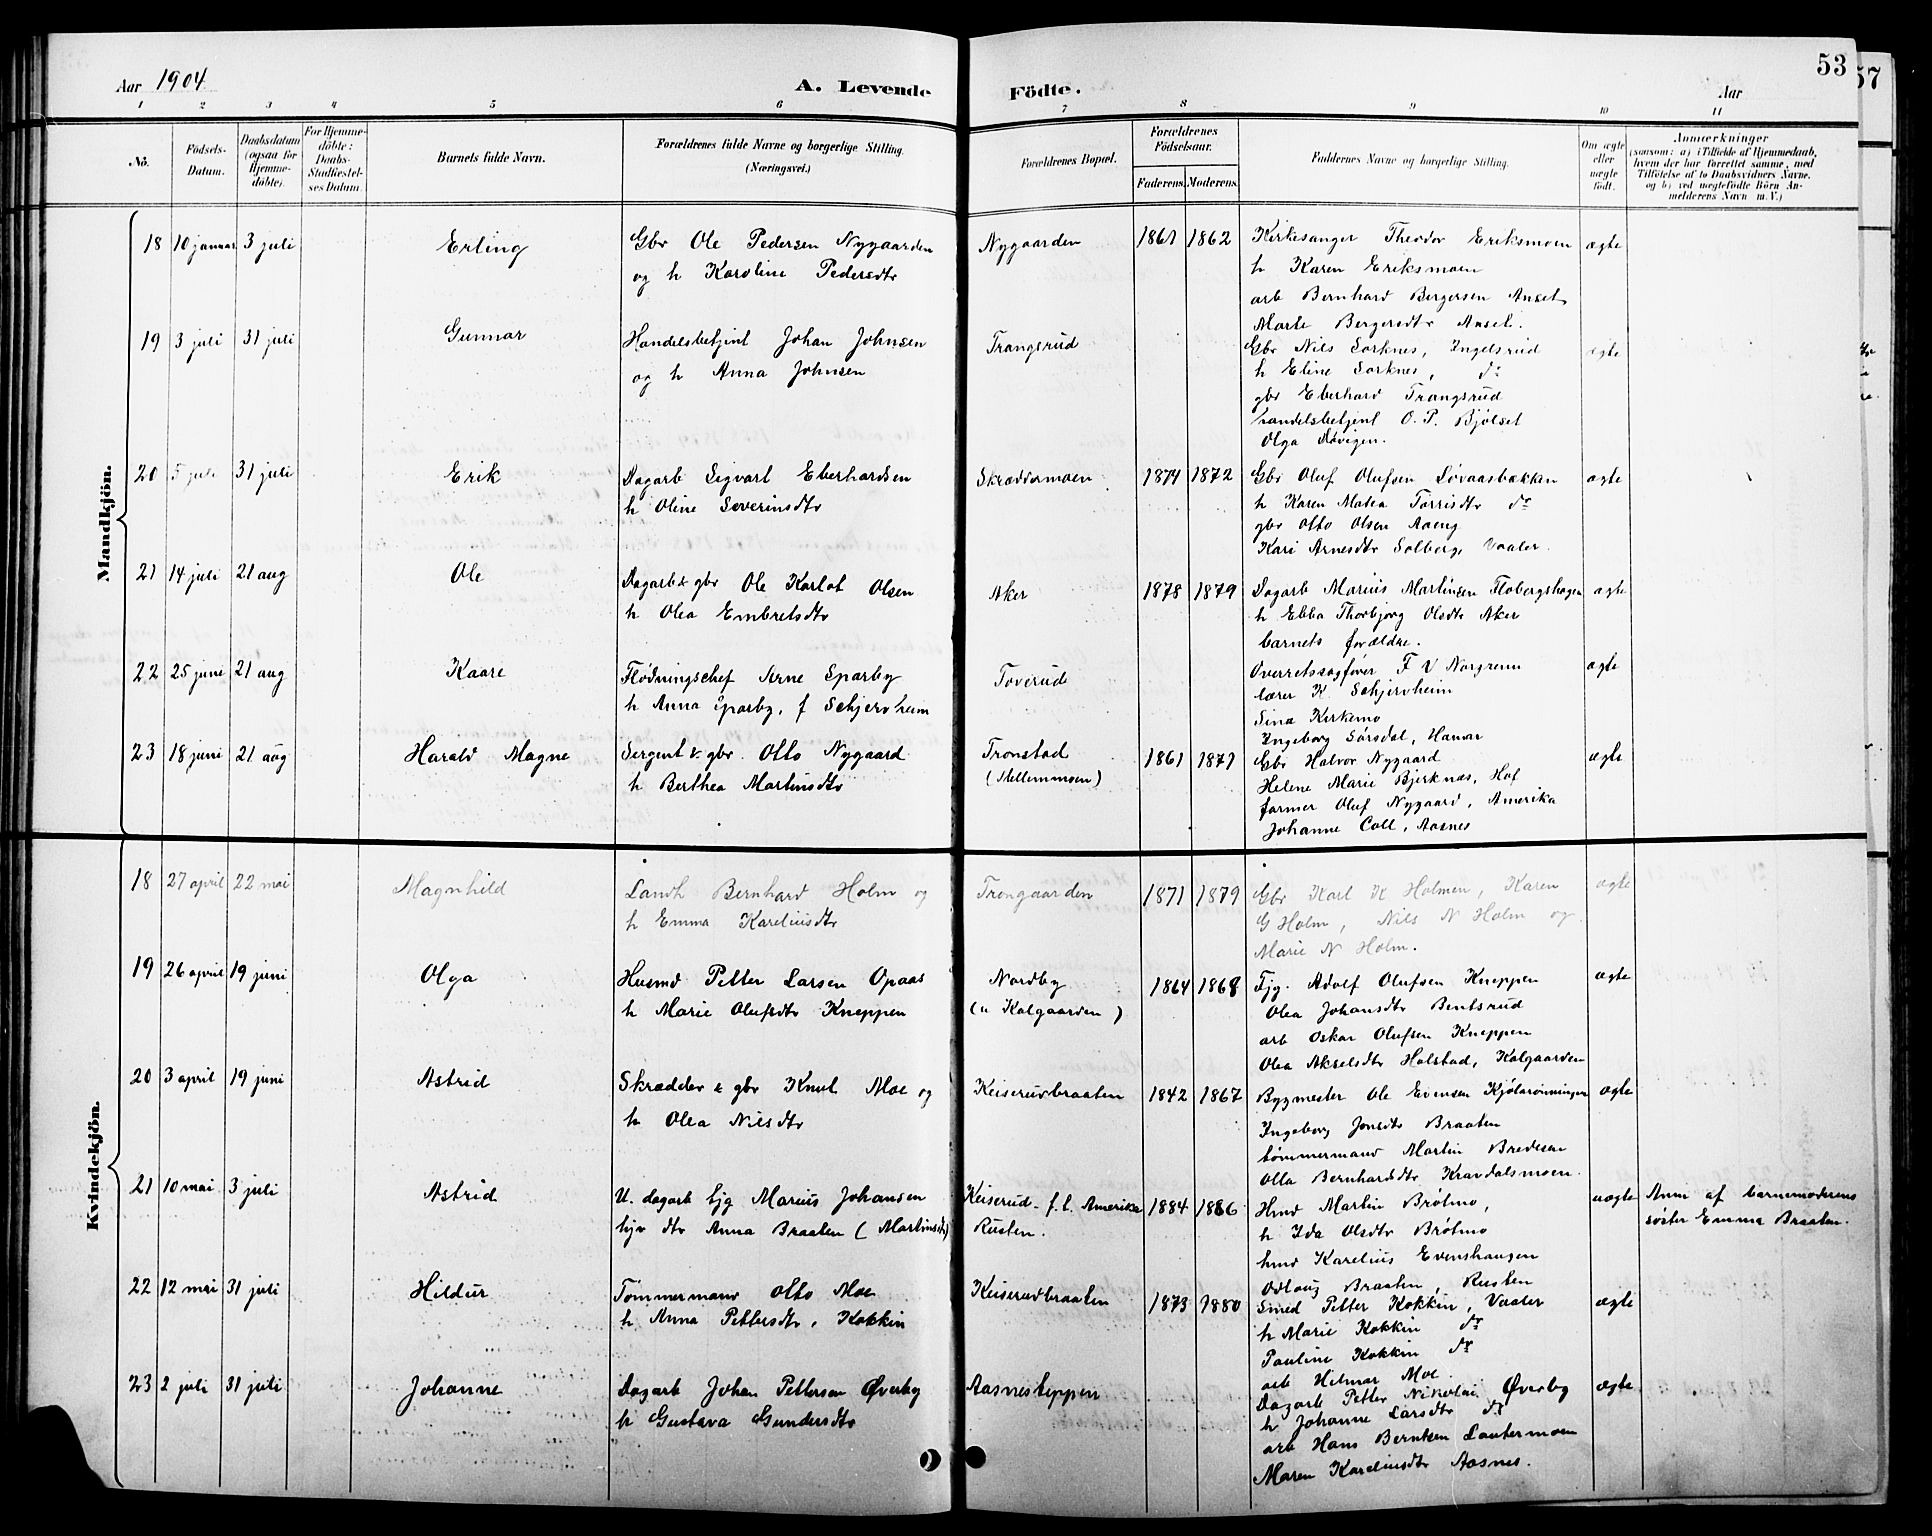 53
57
Aar 1904
A. Levende
Födte.
Aar
1 2 3 4 5 6 7 8 9 10 11
No.
Födsels-Datum.
Daabsdatum (ogsaa for Hjemmedöbte).
For Hjemmedöbte: Daabs-Stadfæstelses Datum.
Barnets fulde Navn.
Forældrenes fulde Navne og borgerlige Stilling. (Næringsvei.)
Forældrenes Bopæl.
Forældrenes Födselsaar.
Faderens. Moderens.
Faddernes Navne og borgerlige Stilling.
Om ægte eller uægte födt.
Anmærkninger
(saasom: a) i Tilfælde af Hjemmedaab, hvem der har forrettet samme, med Tilföielse af to Daabsvidners Navne. og b) ved uægtefödte Börn Anmelderens Navn m. V.)
Mandkjön.
18 10 januar 3 juli Erling Gbr Ole Pedersen Nygaarden Nygaarden 1861 1862 Kirkesanger Theodor Eriksmoen ægte
og h Karoline Pedersdtr h Karen Eriksmoen
arb Bernhard Bergersen Anset
Marte Bergersdtr Anset.
19 3 juli 31 juli Gunnar Handelsbetjent Johan Johnsen Trangsrud Gbr Nils Sorknes, Ingelsrud ægte
og h Anna Johnsen h Eline Sorknes, do
gbr Eberhard Trangsrud
handelsbetjent O. P. Bjölset
Olga Lövigen.
20 5 juli 31 juli Erik Dagarb Sigvart Eberhardsen Skræddermoen 1874 1872 Gbr Oluf Olufsen Lövaasbækken ægte
h Oline Severinsdtr h Karen Matea Torrisdtr do
gbr Otto Olsen Aaeng
Kari Arnesdtr Solberg, Vaaler.
21 14 juli 21 aug Ole Dagarb & gbr Ole Karlot Olsen Aker 1878 1879 Dagarb Marius Martinsen Flobergshagen ægte
h Olea Embretsdtr h Ebba Thorbjørg Olsdtr Aker
barnets forældre.
22 25 juni 21 aug Kaare Flødningschef Arne Sparby Toverud Overretssagfører F V Norgrenn ægte
h Anna Sparby, f Schjervheim lærer K. Schjervheim
Sina Kirkemo
Ingeborg Sørsdal, Hamar
23 18 juni 21 aug Harald Magne Sergent & gbr. Otto Nygaard Tronstad 1861 1871 Gbr Halvor Nygaard ægte
h Berthea Martinsdtr (Mellemmoen) Helene Marie Bjerknæs, Hof
farmer Oluf Nygaard, Amerika
Johanne Coll, Aasnes
Kvindekjön.
18 27 april 22 mai Magnhild Landh Bernhard Holm og Trongaarden 1871 1879 Gbr Karl K Holmen, Karen ægte
h Emma Kareliusdtr G Holm, Nils N Holm og
Marie N Holm.
19 26 april 19 juni Olga Husmd Petter Larsen Opaas Nordby 1864 1868 Tjg. Adolf Olufsen Kneppen ægte
h Marie Olufsdtr Kneppen (u Kalgaarden) Olea Johansdtr Bentsrud
arb Oskar Olufsen Kneppen
Olea Akselsdtr Halstad, Kalgaarden
20 3 april 19 juni Astrid Skrædder & gbr Knut Moe og Keiserudbraaten 1842 1867 Bygmester Ole Evensen Kjölarönningen ægte
h Olea Nilsdtr Ingeborg Jonsdtr Braaten
tømmermand Martin Bredesen
Olla Bernhardsdtr Kravdalsmoen.
21 10 mai 3 juli Astrid U. dagarb tjg Marius Johansen Keiserud - f. t. Amerika 1884 1886 Hmd Martin Bråtmo, uægte Anm af barnemoderens
tjv dtr Anna Braaten (Martinsdtr) Rusten. h Ida Olsdtr Bråtmo søster Emma Braaten.
hmd Karelius Evenshaugen
Odlaug Braaten, Rusten
22 12 mai 31 juli Hildur Tømmermand Otto Moe Keiserudbraaten 1873 1880 Smed Petter Kokkin, Vaaler ægte
h Anna Pettersdtr, Kokkin h Marie Kokkin do
Pauline Kokkin do
arb Helmar Moe.
23 2 juli 31 juli Johanne Dagarb Johan Pettersen Øverby Aasnesteppen Dagarb Petter Nikolai Øverby ægte
h Gustava Gundersdtr h Johanne Larsdtr do
arb Hans Berntsen Lautermoen
Maren Kareliusdtr Aasnes.